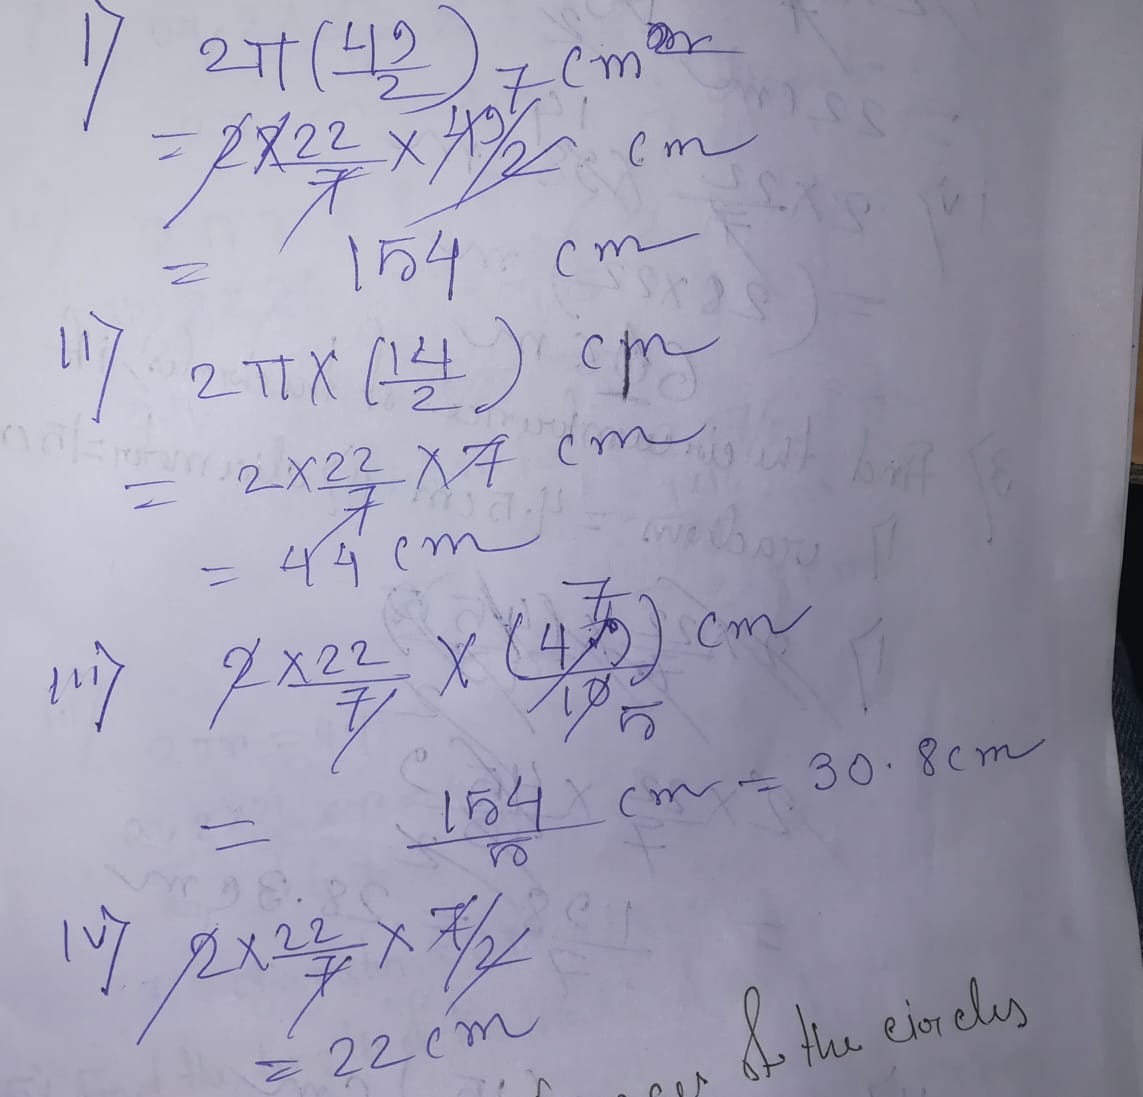 i) 2π(49/2) cm
= 2×22/7 × 49/2 7 cm
= 154 cm
ii) 2π × (14/2) cm
= 2×22/7 × 7 cm
= 44 cm
iii) 2×22/7 × (49)/10 7 5 cm
= 154/5 cm = 30.8cm
iv) 2×22/7 × 7/2
= 22cm
the circles